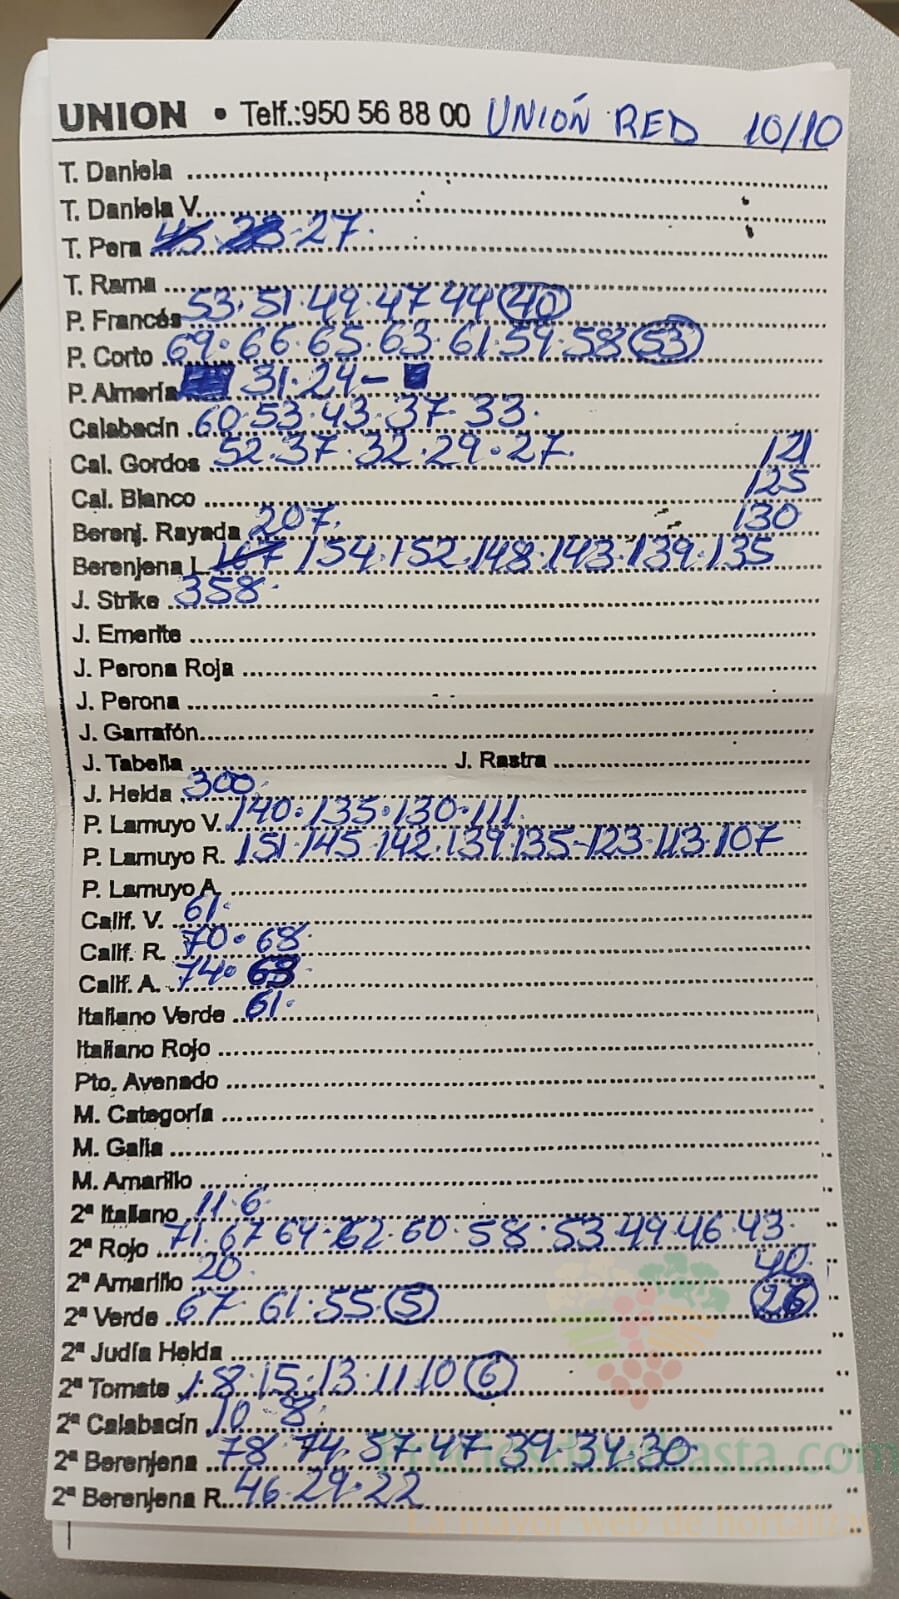 UNION • Telf.:950 56 88 00 UNIÓN RED 10/10
T. Daniela
T. Daniela V.
T. Pera 45 28 27
T. Rama
P. Francés 53 51 49 47 44 40
P. Corto 69 66 65 63 61 59 58 53
P. Almería 31 24
Calabacín 60 53 43 37 33
Cal. Gordos 52 37 32 29 27 121
Cal. Blanco 125
Berenj. Rayada 207 130
Berenjena L 167 154 152 148 143 139 135
J. Strike 358
J. Emerite
J. Perona Roja
J. Perona
J. Garrafón
J. Tabella J. Rastra
J. Helda 300
P. Lamuyo V. 140 135 130 111
P. Lamuyo R. 151 145 142 139 135 123 113 107
P. Lamuyo A
Calif. V. 61
Calif. R. 70 68
Calif. A. 74 63
Italiano Verde 61
Italiano Rojo
Pto. Avenado
M. Categoría
M. Galia
M. Amarillo
2ª Italiano 11 6
2ª Rojo 71 67 64 62 60 58 53 49 46 43
2ª Amarillo 20 40
2ª Verde 67 61 55 5 26
2ª Judía Helda
2ª Tomate 18 15 13 11 10 6
2ª Calabacín 10 8
2ª Berenjena 78 74 57 47 39 34 30
2ª Berenjena R. 46 29 22
La mayor web de hortalizas